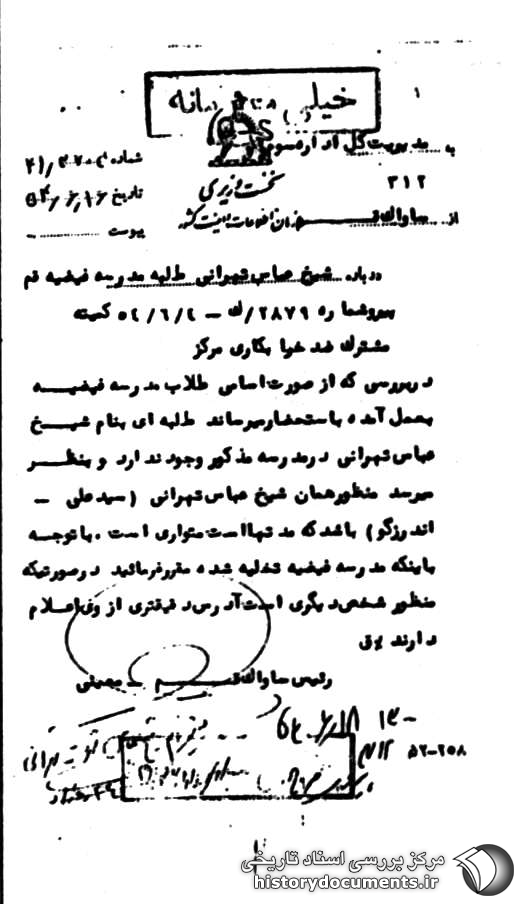 خیلی محرمانه
به مدیریت کل اداره سوم
312
نخست وزیری
سازمان اطلاعات و امنیت کشور
از ساواک قم
شماره
تاریخ
پیوست
درباره شیخ عباس تهرانی طلبه مدرسه فیضیه قم
پیرو شماره 2879/ک – 54/6/4 کمیته
مشترک ضد خرابکاری مرکز
در بررسی که از صورت اسامی طلاب مدرسه فیضیه
بعمل آمده باستحضار میرساند طلبه ای بنام شیخ
عباس تهرانی در مدرسه مذکور وجود ندارد و بنظر
میرسد منظور همان شیخ عباس تهرانی (سید علی –
اندرزگو) باشد که مدتها است متواری است . با توجه
باینکه مدرسه فیضیه تخلیه شده مقرر فرمائید در صورتیکه
منظور شخص دیگری است آدرس دقیقتری از وی اعلام
دارند یوق
رئیس ساواک قم – معینی
مرکز بررسی اسناد تاریخی
historydocuments.ir